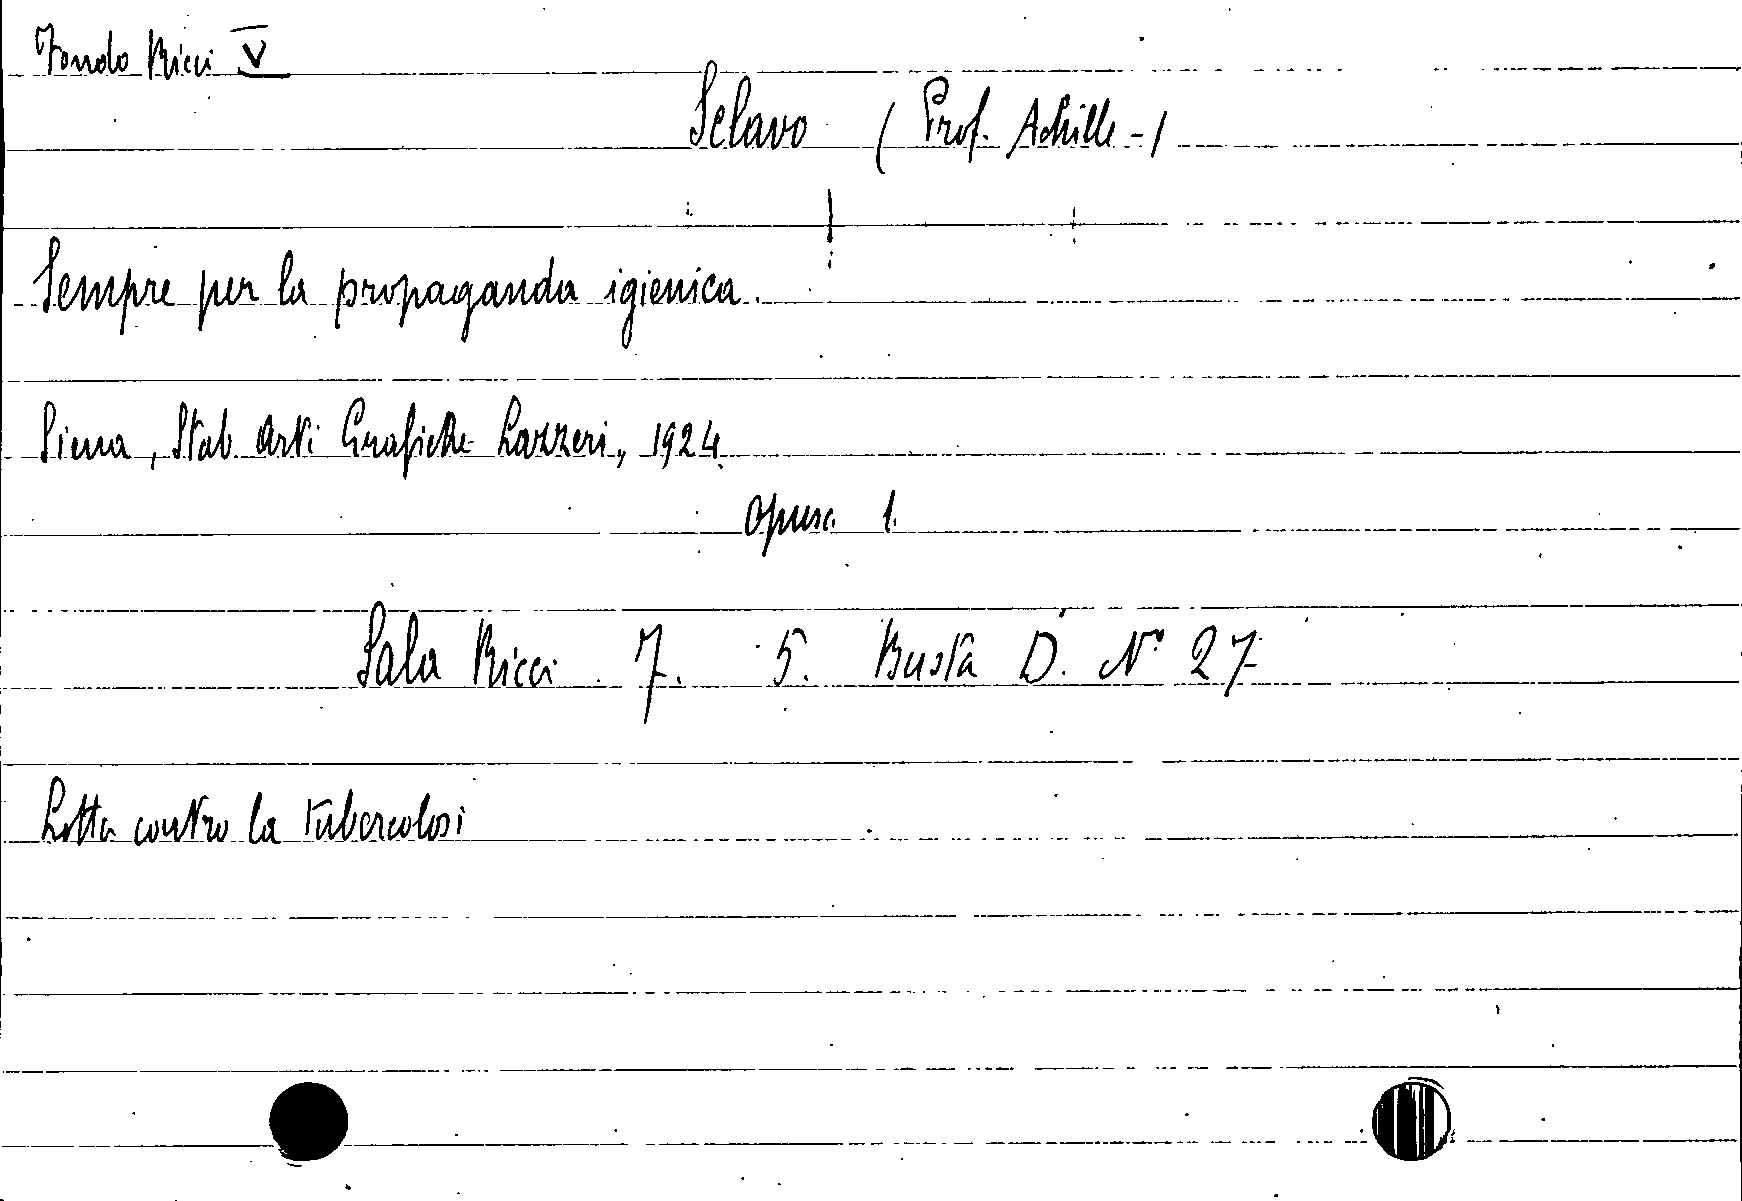 Fondo Ricci V
Sclavo ( Prof. Achille - )
Sempre per la propaganda igienica.
Siena, Stab. Arti Grafiche Lazzeri, 1924.
Opusc. 1.
Sala Ricci 7. 5. Busta D. N° 27
Lotta contro la tubercolosi